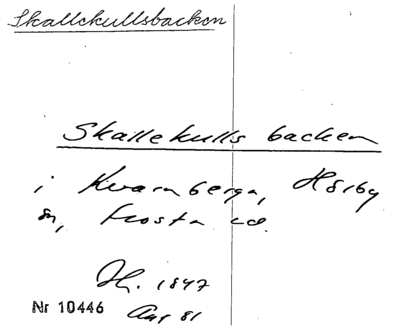 Skallekullsbacken
Skallekulls backen
i Kvarnberga, Hörby
sn, Frosta hd.
Jh. 1847
Nr 10446 Aug 81